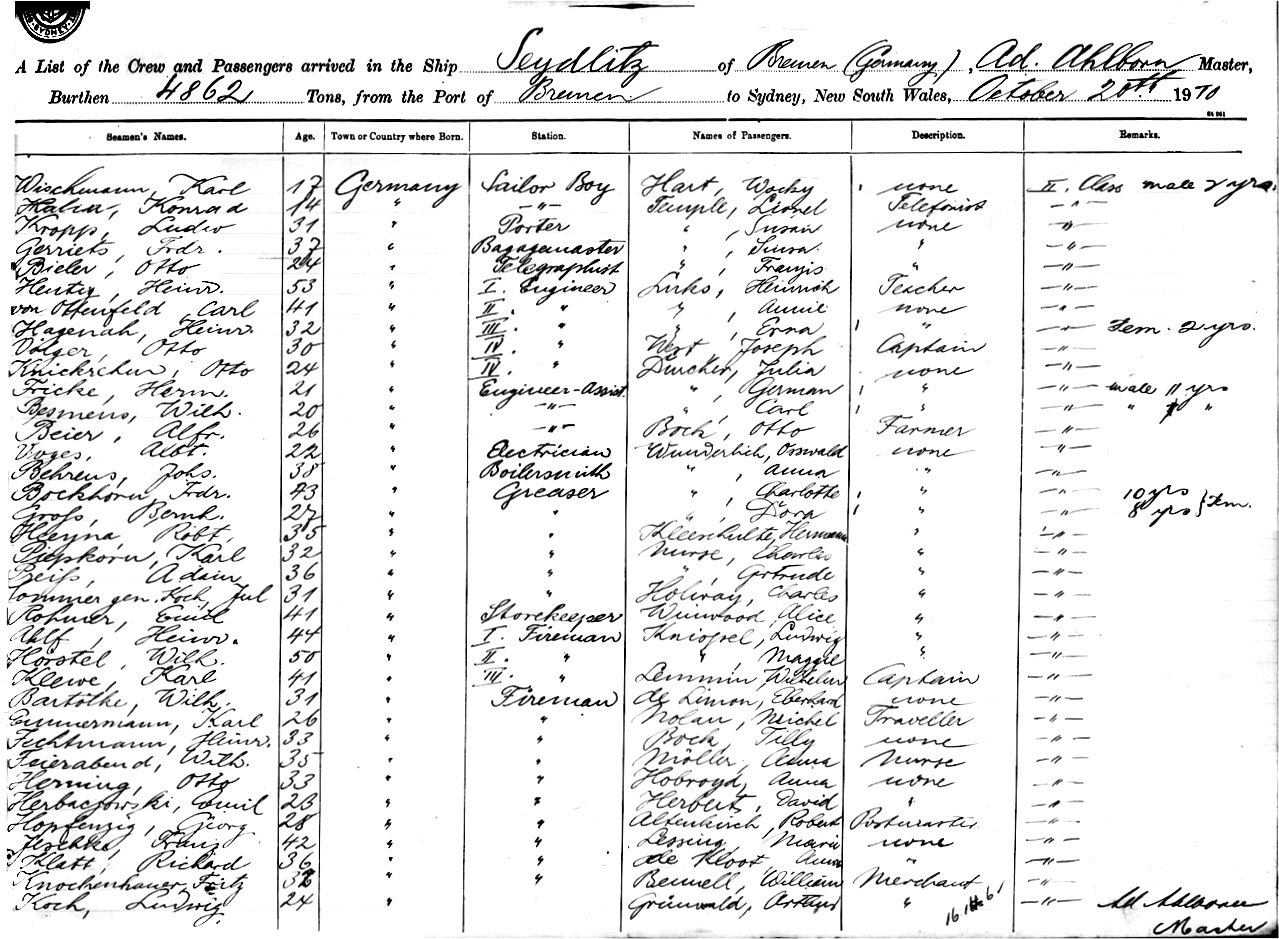 SYDNEY
A List of the Crew and Passengers arrived in the Ship Seydlitz of Bremen (Germany), Ad. Ahlborn Master,
Burthen 4862 Tons, from the Port of Bremen to Sydney, New South Wales, October 20th 1910
Seamen's Names. Age. Town or Country where Born. Station. Names of Passengers. Description. Remarks.
Wischmann, Karl 17 Germany Sailor Boy Hart, Wocky none II. Class male 2 yrs.
Konrad 14 " —"— Temple, Lionel Telefonist —"—
Kropp, Ludw 31 " Porter ", Susan none —"—
Gerriets, Frdr. 37 " Bagagemaster " " —"—
Bieler, Otto 24 " Telegraphist ", Franjis " —"—
Hentey, Heinr. 53 " I. Engineer Luks, Heinrich Tescher —"—
von Ottenfeld, Carl 41 " II. " ", Annie none —"—
Hagenah, Heinr. 32 " III. " ", Erna " —"— Fem. 2 yrs.
Völger, Otto 30 " IV. " West, Joseph Captain —"—
Otto 24 " IV. " Dürcher, Julia none —"—
Fricke, Herm. 21 " Engineer-Assist. ", German " —"— male 11 yrs
Besmens, Wilh. 20 " —"— ", Carl " —"— " 7 "
Beier, Alfr. 26 " —"— Bock, Otto Farmer —"—
Voges, Albt. 22 " Electrician Wunderlich, Osswald none —"—
Behrens, Johs. 38 " Boilersmith ", Anna " —"—
Bockhorn, Frdr. 43 " Greaser ", Charlotte " —"— 10 yrs
Groß, Bernh. 27 " " ", Dora " —"— 8 yrs } Fem.
Heyna, Robt. 35 " " Kleeschulte, Hermann " —"—
Piepkorn, Karl 32 " " Nurse, Charles " —"—
Preiß, Adam 36 " " ", Gertrude " —"—
Sommer gen. Koch, Jul 31 " " Holway, Charles " —"—
Rohmer, Emil 41 " Storekeeper Winwood, Alice " —"—
Heinr. 44 " I. Fireman Ludwig " —"—
Horstel, Wilh. 50 " II. " ", Maggie " —"—
Klewe, Karl 41 " III. " Lemmin, Wilhelm Captain —"—
Bartölke, Wilh. 31 " Fireman de Limon, Eberhard none —"—
Emmermann, Karl 26 " " Nolan, Meichel Traveller —"—
Fechtmann, Heinr. 33 " " Bock, Tilly none —"—
Feierabend, Wilh. 35 " " Möller, Anna Nurse —"—
Herming, Otto 33 " " Hobroyd, Anna none —"—
Herbaczowski, Emil 23 " " Herbert, David " —"—
Hopfenzig, Georg 28 " " Altenkirch, Robert Postmaster —"—
Jeschke, Franz 42 " " Lessing, Marie none —"—
Klatt, Richard 36 " " de Kloot, Anna " —"—
Knochenhauer, Fritz 32 " " Bennell, William Merchant —"—
Koch, Ludwig 24 " Grünwald, Arthur " —"— Ad Ahlborn
Master